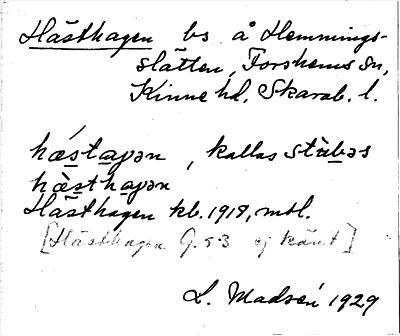 Hästhagen bs å Hemmings-
slätten, Forshems sn,
Kinne hd. Skarab. l.
hǽstaɡən, kallas stùbəs
hæ̀sthaɡən
Hästhagen kb. 1918, mtl.
[Hästhagen G. 53 ej känt]
L. Madsén 1929